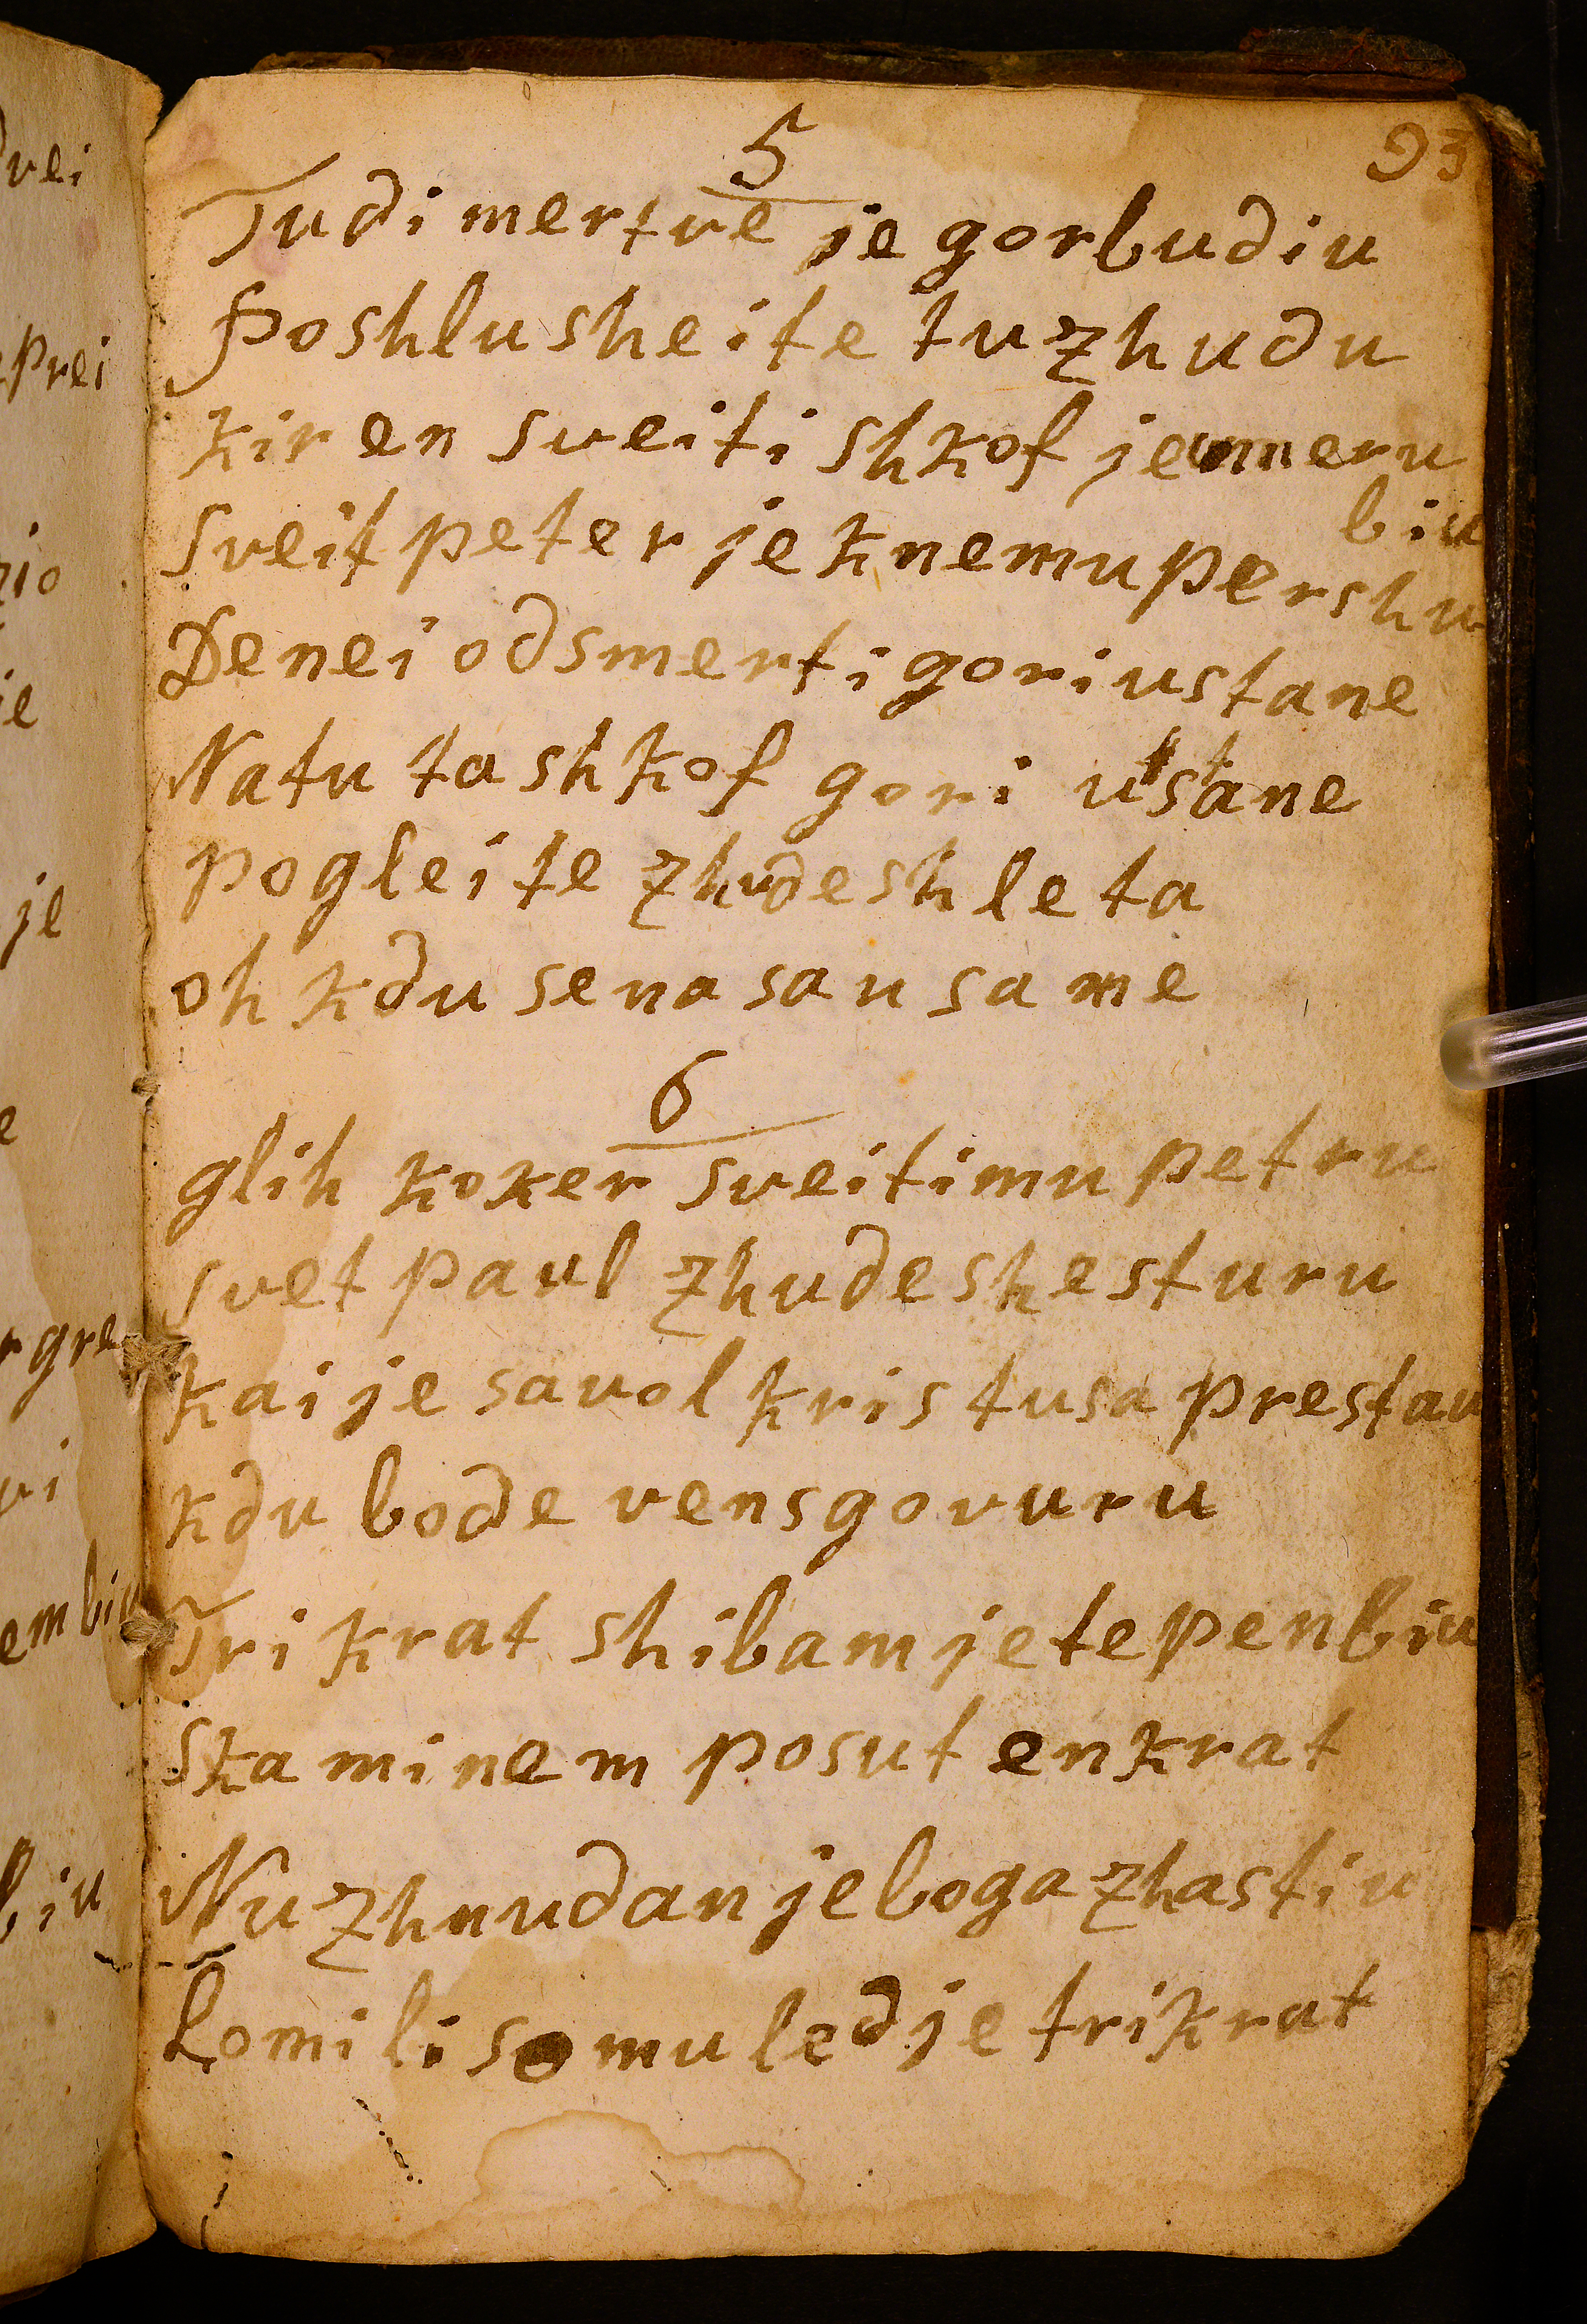 93
5
Tudi mertve je gorbudiu
poshlusheite tu zhudu
kir en sveiti shkof je umeru
biu
sveit peter je knemu pershu
De nei od smerti gori ustane
Natu ta shkof gori ustane
pogleite zhudesh le ta
oh kdu se na sausame
6
glih koker sveitimu petru
svet paul zhudeshe sturu
kai je savol kristusa prestau
kdu bode vens govuru
Tri krat shibam je tepen biu
skaminem posut enkrat
Nu zhnudan je boga zhastiu
Lomili so mu led je trikrat
vei
prei
zio
ie
je
e
r gre
vi
em biu
biu